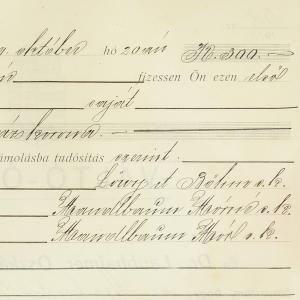 október hó 20 án K. 300.—
fizessen Ön ezen első
saját
korona.—
számolásba tudósítás szerint.
Lőwy et Böhm s.k.
Mandlbaum Mórné s.k.
Mandlbaum Mór s.k.